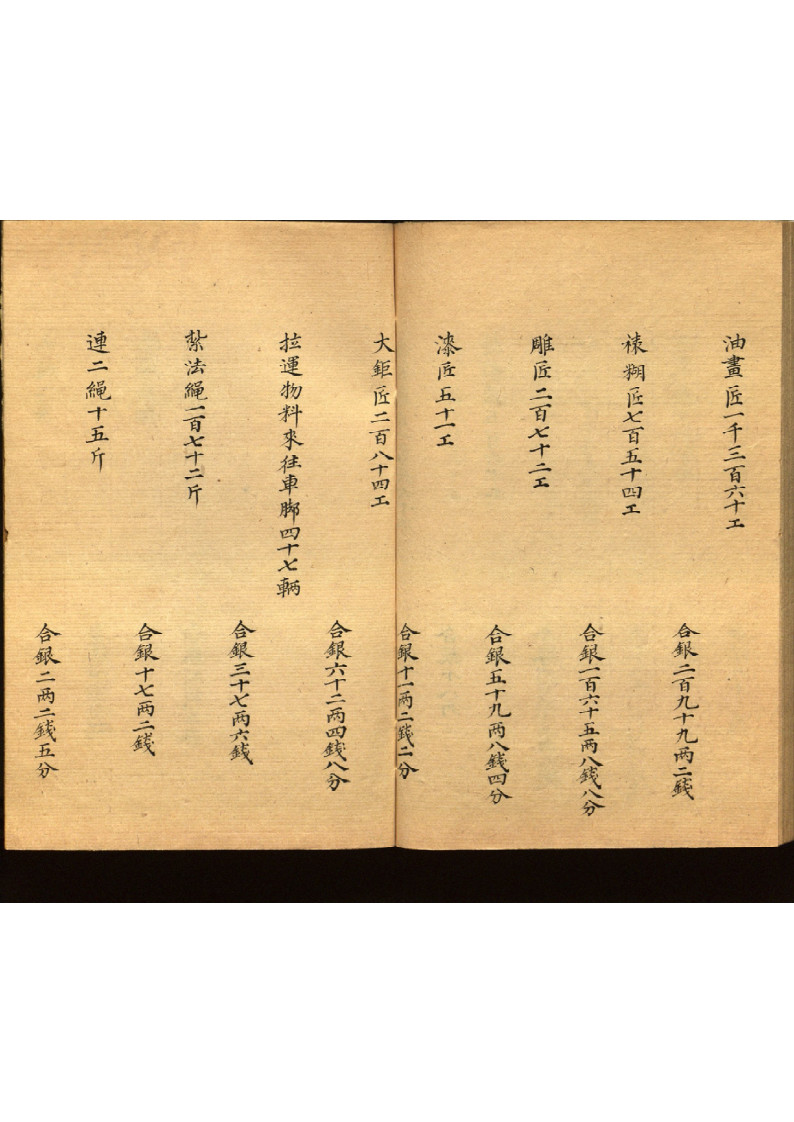 油畫匠一千三百六十工
合銀二百九十九两二錢
裱糊匠七百五十四工
合銀一百六十五两八錢八分
雕匠二百七十二工
合銀五十九两八錢四分
漆匠五十一工
合銀十一两二錢二分
大鉅匠二百八十四工
合銀六十二两四錢八分
拉運物料來往車脚四十七輌
合銀三十七两六錢
紮法繩一百七十二斤
合銀十七两二錢
連二繩十五斤
合銀二两二錢五分